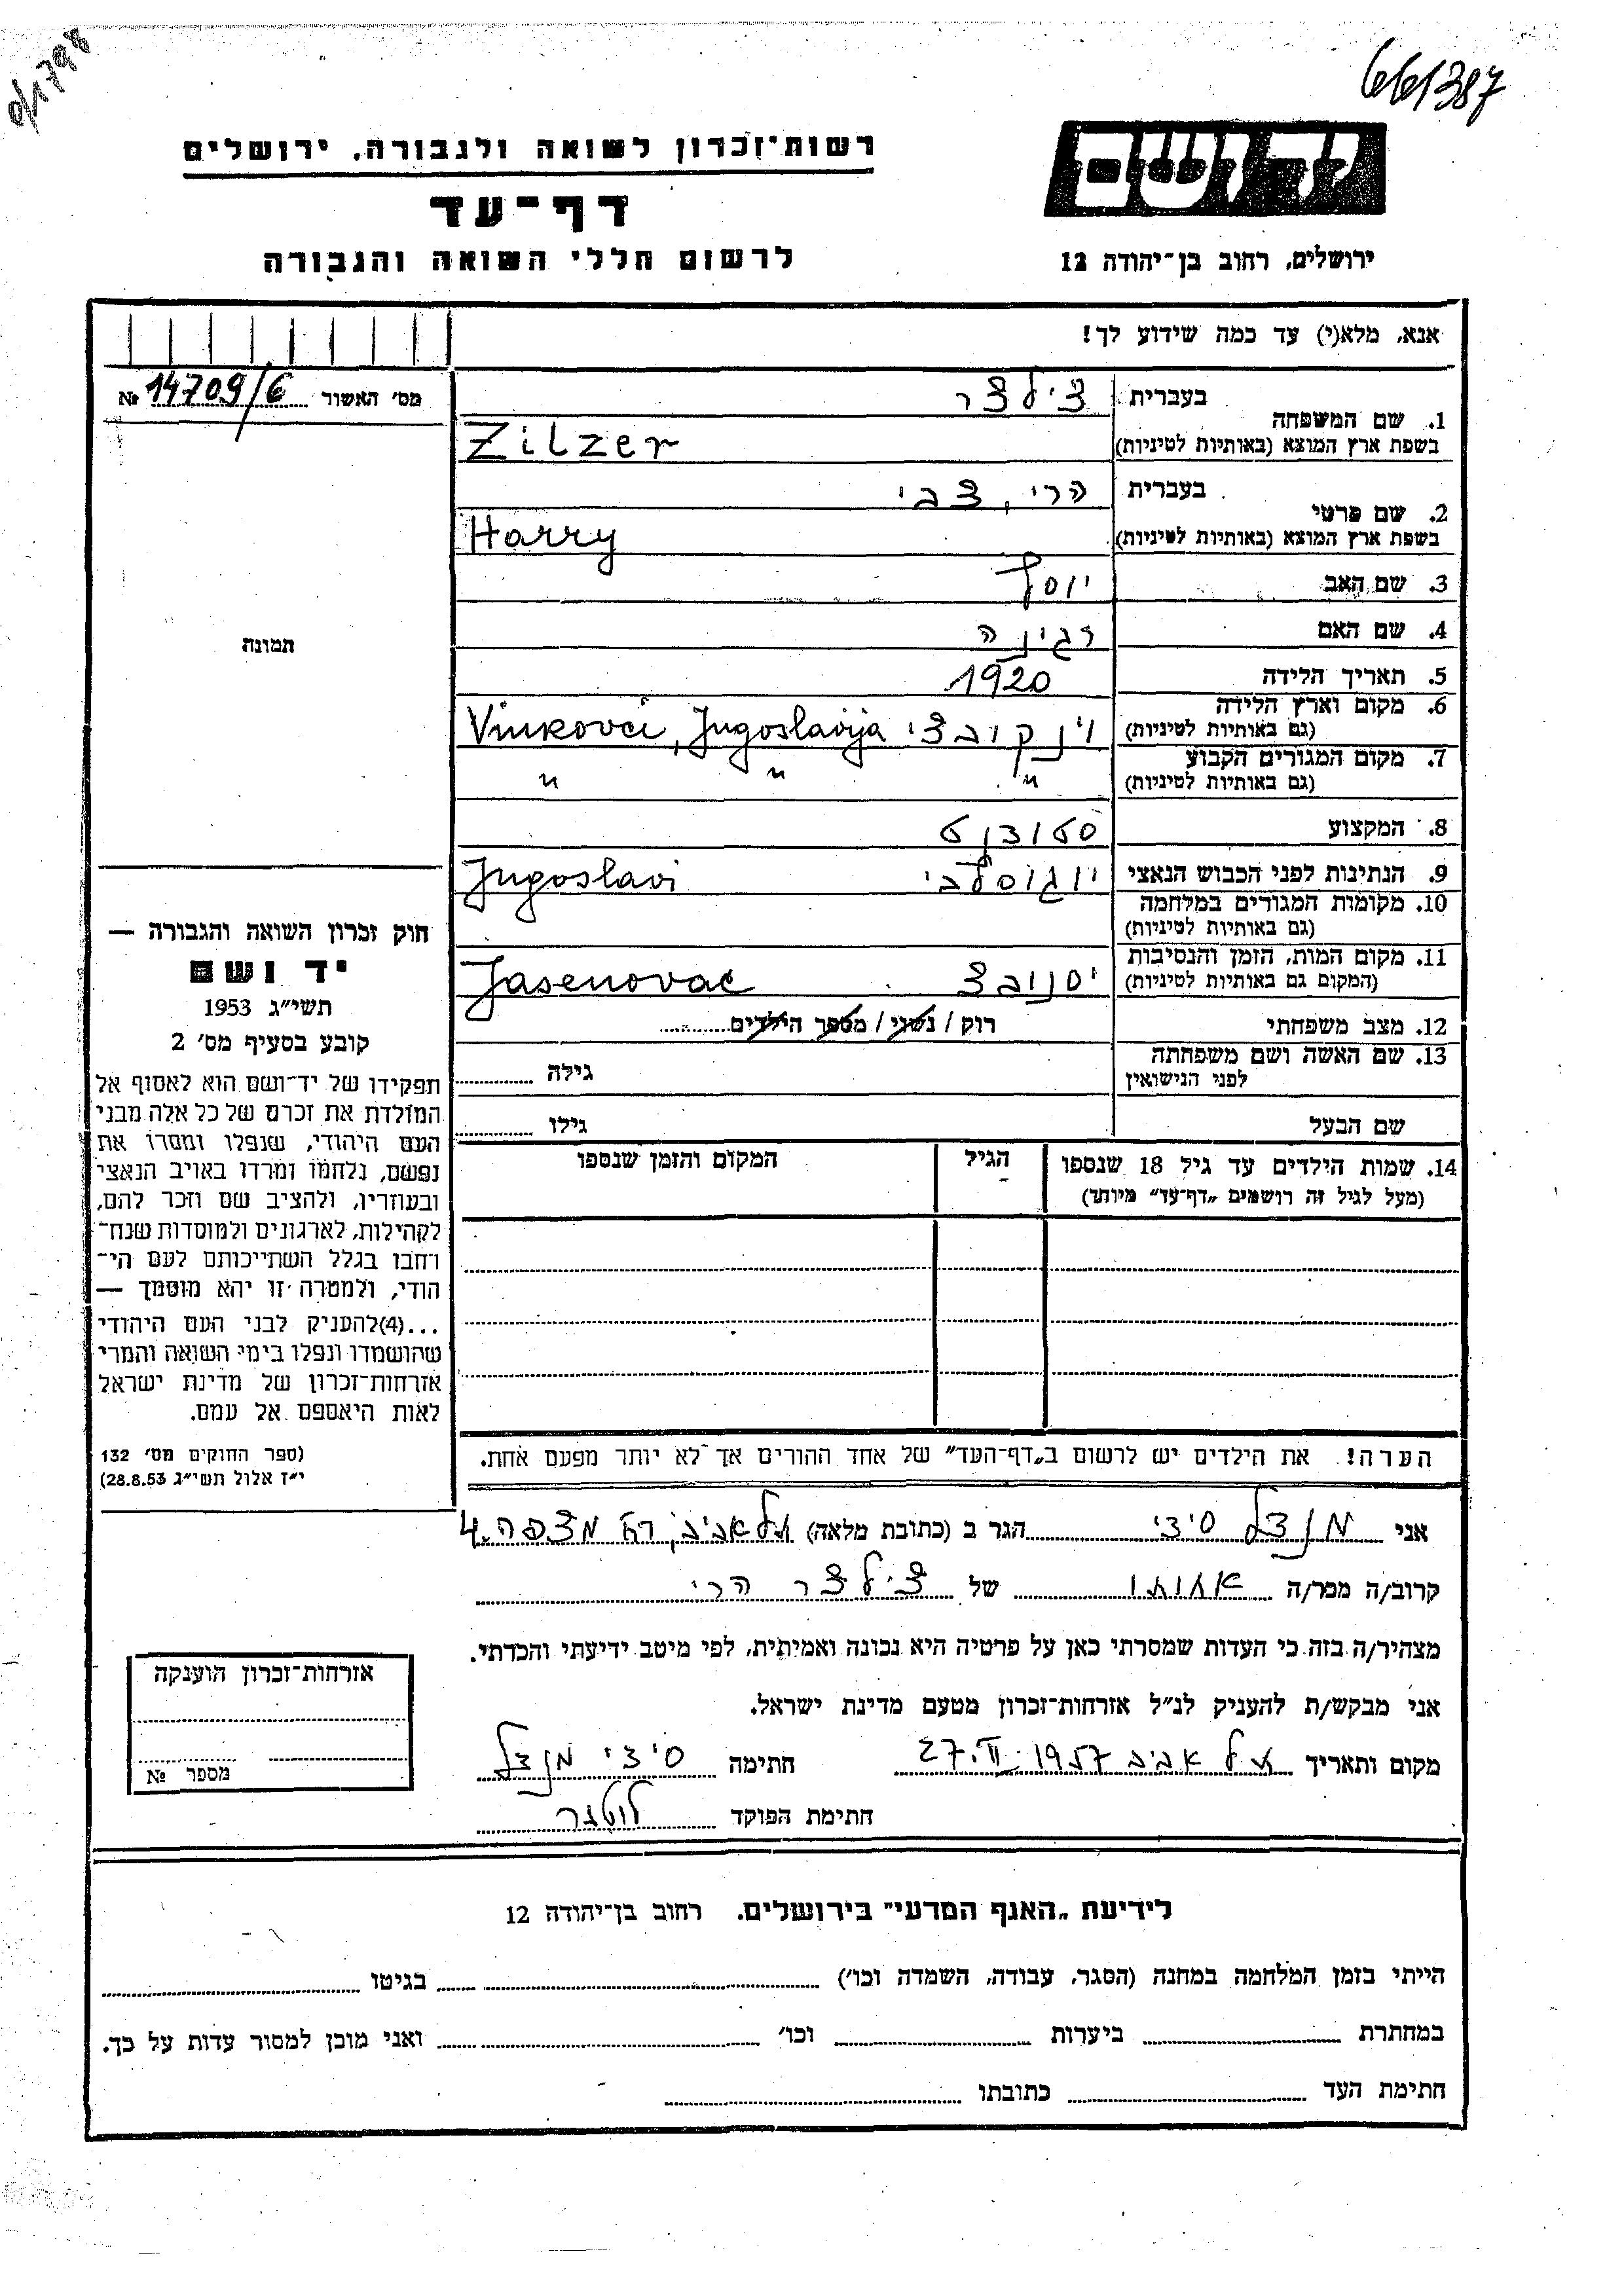 0/1798
661387
יד ושם
ירושלים, רחוב בן־יהודה 12
רשות־זכרון לשואה ולגבורה, ירושלים
דף־עד
לרשום חללי השואה והגבורה
אנא, מלא(י) עד כמה שידוע לך!
מס׳ האשור 14709/6 №
תמונה
1. שם המשפחה בעברית צילצר
בשפת ארץ המוצא (באותיות לטיניות) Zilzer
2. שם פרטי בעברית הרי, צבי
בשפת ארץ המוצא (באותיות לטיניות) Harry
3. שם האב יוסף
4. שם האם רגינה
5. תאריך הלידה 1920
6. מקום וארץ הלידה
(גם באותיות לטיניות) וינקובצי Vinkovci, Jugoslavija
7. מקום המגורים הקבוע
(גם באותיות לטיניות) " " "
8. המקצוע סטודנט
9. הנתינות לפני הכבוש הנאצי יוגוסלבי Jugoslavi
10. מקומות המגורים במלחמה
(גם באותיות לטיניות)
11. מקום המות, הזמן והנסיבות
(המקום גם באותיות לטיניות) יסנובצ Jasenovac
12. מצב משפחתי רוק / נשוי / מספר הילדים
13. שם האשה ושם משפחתה
לפני הנישואין גילה
שם הבעל גילו
14. שמות הילדים עד גיל 18 שנספו הגיל המקום והזמן שנספו
(מעל לגיל זה רושמים „דף־עד” מיוחד)
הערה! את הילדים יש לרשום ב„דף־העד” של אחד ההורים אך לא יותר מפעם אחת.
חוק זכרון השואה והגבורה —
יד ושם
תשי״ג 1953
קובע בסעיף מס׳ 2
תפקידו של יד־ושם הוא לאסוף אל
המולדת את זכרם של כל אלה מבני
העם היהודי, שנפלו ומסרו את
נפשם, נלחמו ומרדו באויב הנאצי
ובעוזריו, ולהציב שם וזכר להם,
לקהילות, לארגונים ולמוסדות שנח־
רחבו בגלל השתייכותם לעם הי־
הודי, ולמטרה זו יהא מוסמך —
...(4)להעניק לבני העם היהודי
שהושמדו ונפלו בימי השואה והמרי
אזרחות־זכרון של מדינת ישראל
לאות היאספם אל עמם.
(ספר החוקים מס׳ 132
י״ז אלול תשי״ג 28.8.53)
אני מנדל סיצי הגר ב (כתובת מלאה) תל אביב, רח מצפה 4.
קרוב/ה מכר/ה אחותו של צילצר הרי
מצהיר/ה בזה כי העדות שמסרתי כאן על פרטיה היא נכונה ואמיתית, לפי מיטב ידיעתי והכרתי.
אני מבקש/ת להעניק לנ״ל אזרחות־זכרון מטעם מדינת ישראל.
מקום ותאריך תל אביב 27.II.1957 חתימה סיצי מנדל
חתימת הפוקד
אזרחות־זכרון הוענקה
מספר №
לידיעת „האגף המדעי” בירושלים. רחוב בן־יהודה 12
הייתי בזמן המלחמה במחנה (הסגר, עבודה, השמדה וכו׳) בגיטו
במחתרת ביערות וכו׳ ואני מוכן למסור עדות על כך.
חתימת העד כתובתו